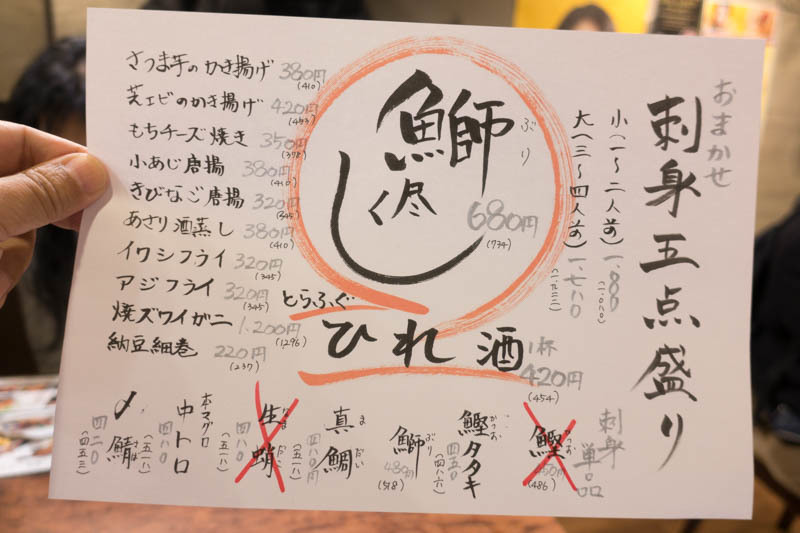 おまかせ
刺身五点盛り
小(一〜二人前)一、〇〇〇
(一、〇八〇)
大(三〜四人前)一、七八〇
(一、九二二)
鰤尽くし
ぶり
680円
(734)
とらふぐ
ひれ酒
1杯
420円
(454)
さつま芋のかき揚げ 380円
(410)
芝エビのかき揚げ 420円
(453)
もちチーズ焼き 350円
(378)
小あじ唐揚 380円
(410)
きびなご唐揚 320円
(345)
あさり酒蒸し 380円
(410)
イワシフライ 320円
(345)
アジフライ 320円
(345)
焼ズワイガニ 1,200円
(1,296)
納豆細巻 220円
(237)
刺身
単品
鰹
かつお
450円
(486)
鰹タタキ
かつお
四五〇
(四八六)
鰤
ぶり
480円
(518)
真鯛
まだい
四八〇円
(五一八)
生蛸
なまだこ
四八〇
(五一八)
本マグロ
中トロ
四八〇
(五一八)
〆鯖
さば
四二〇
(四五三)